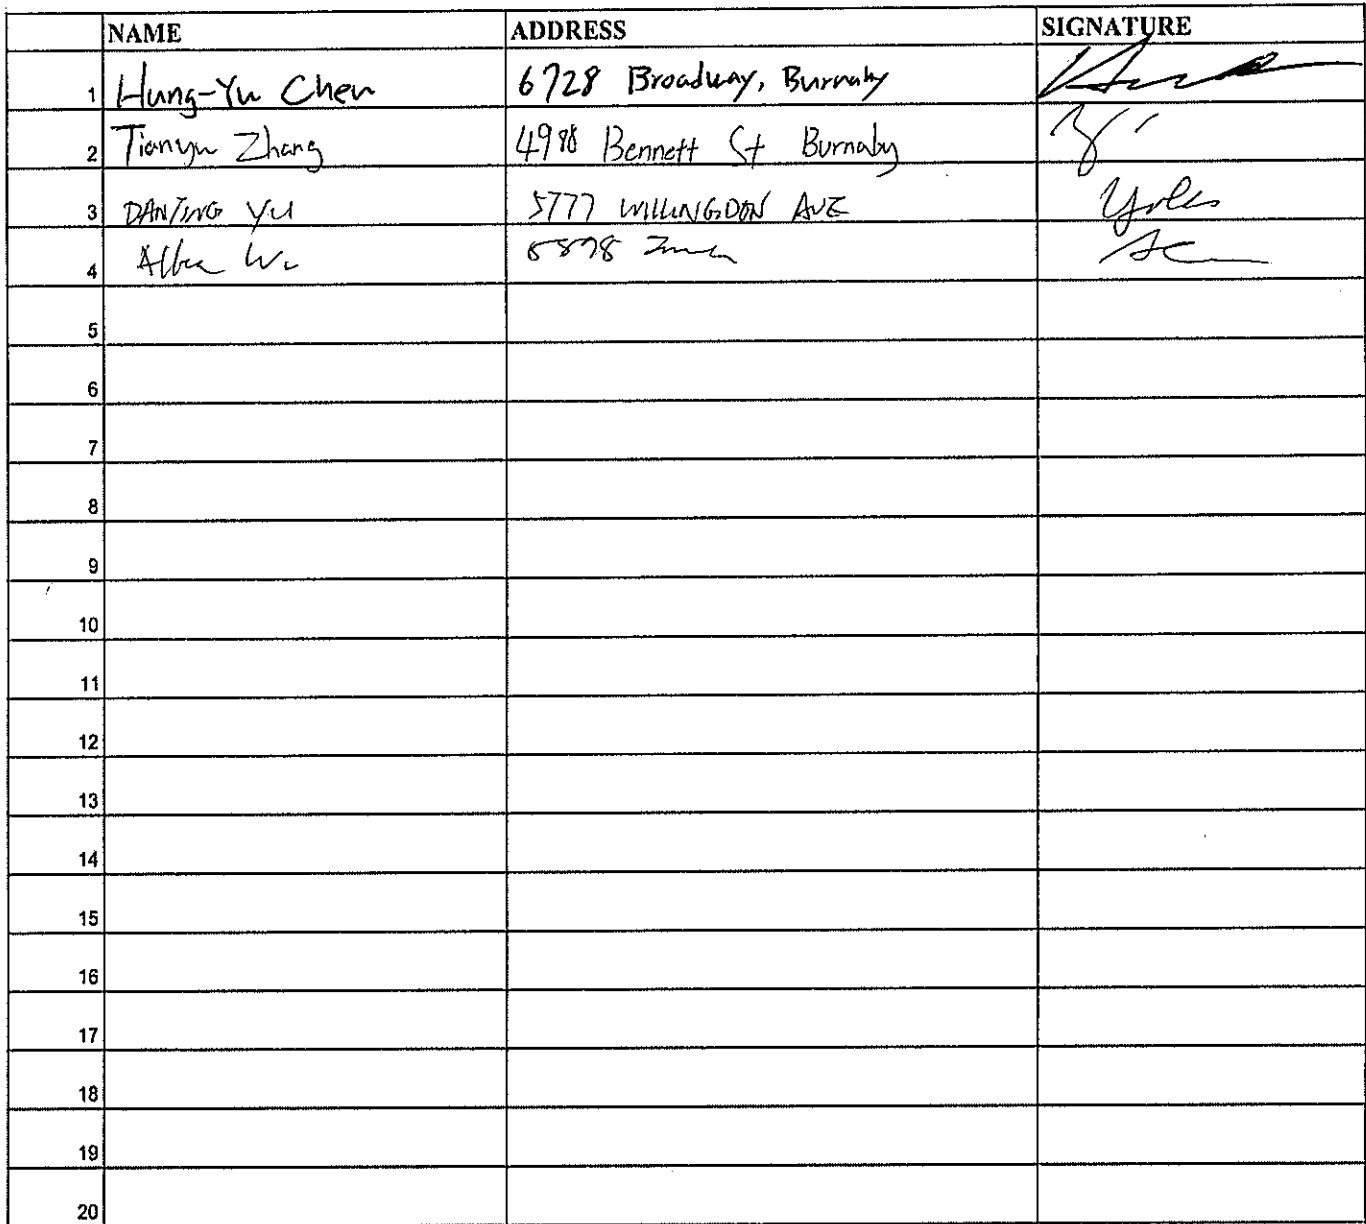 NAME ADDRESS SIGNATURE
1 Hung-Yu Chen 6728 Broadway, Burnaby
2 Tianyu Zhang 4988 Bennett St Burnaby
3 DANTING YU 5777 WILLINGDON AVE
4
5
6
7
8
9
10
11
12
13
14
15
16
17
18
19
20